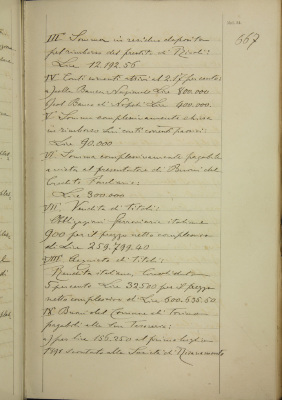 667
III° Somme in
per rimborso del prestito di
Lire 12.192.56
IV Conti correnti attivi al 2.17 per cento:
a) alla Banca Nazionale Lire 800.000
b) al Banco di Napoli Lire 400.000.
V° Somme complessivamente
in rimborso dei conti correnti passivi:
Lire 90.000
VI° Somme complessivamente pagabili
a vista al presentatore di Buoni del
Credito Fondiario:
Lire 300.000
VII° Vendita di titoli:
Obbligazioni ferroviarie italiane
900 per il prezzo netto complessivo
di Lire 259.799.20
VIII° Acquisto di titoli:
Rendita italiana, Consolidato
5 per cento Lire 32500 per il prezzo
netto complessivo di Lire 600.635.50
IX Buoni del Comune di Torino
pagabili alla sua Tesoreria:
a) per lire 156.250 al primo luglio
1891 scontato alla Società di Risanamento